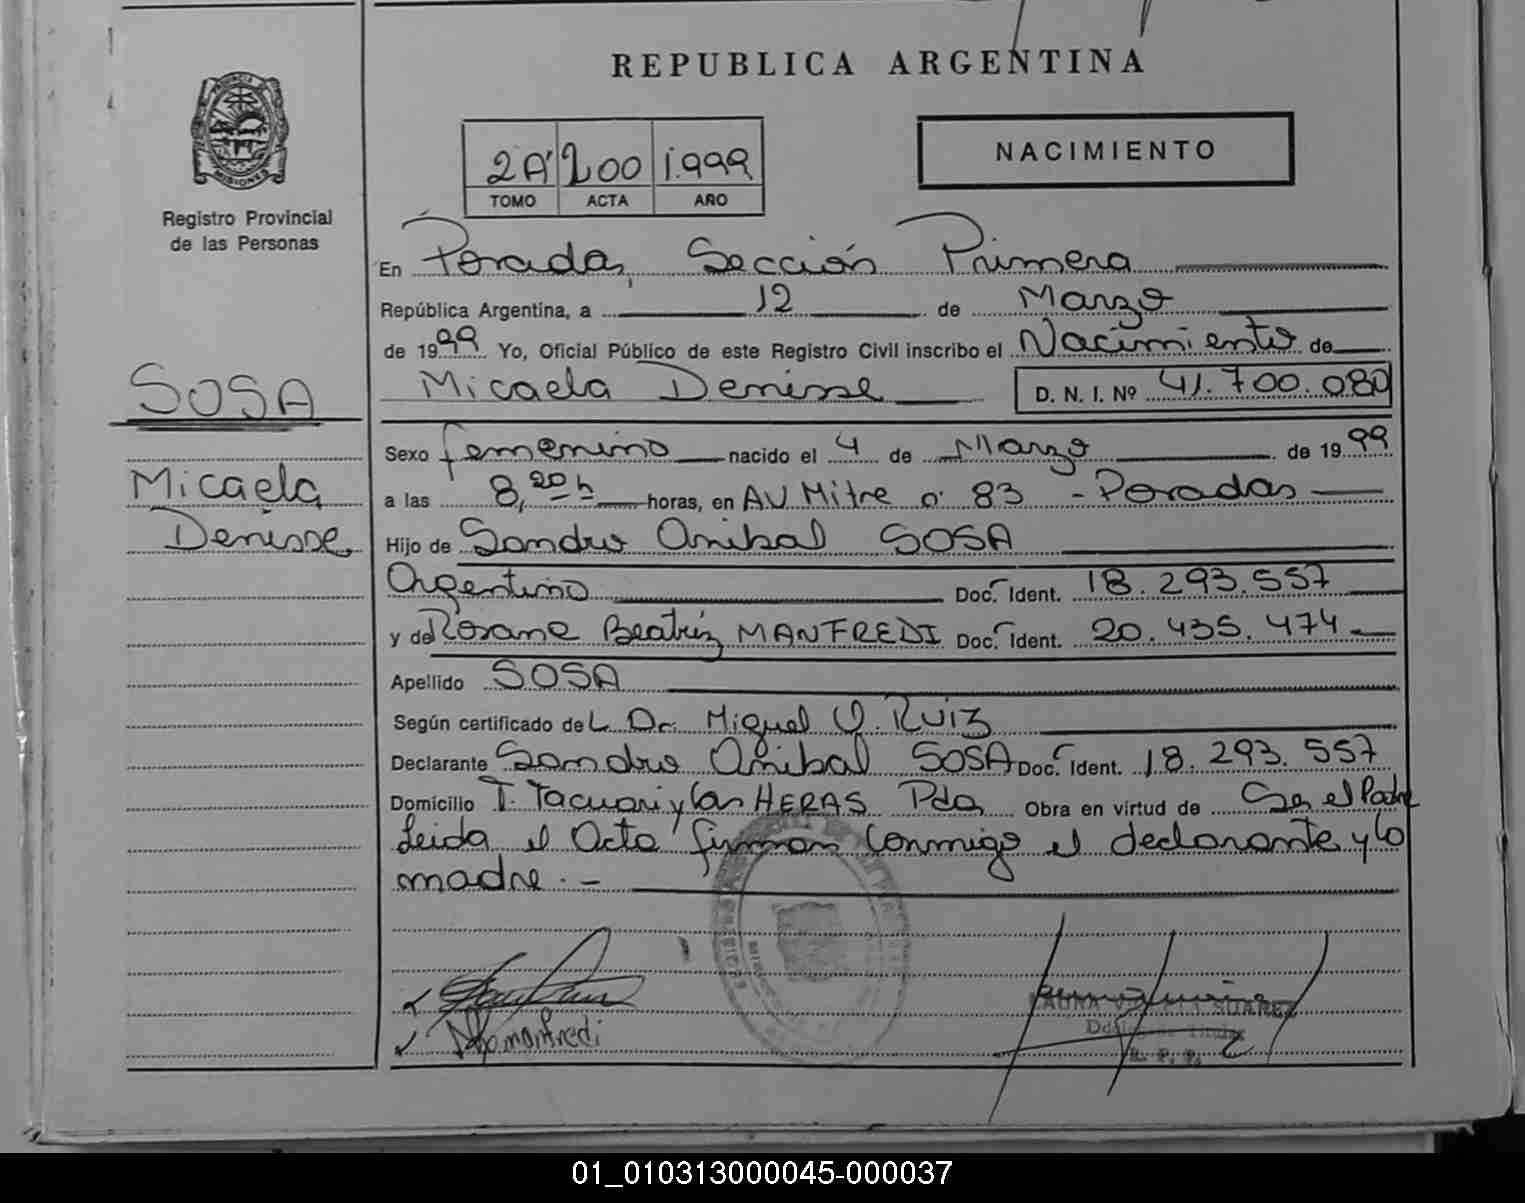 REPUBLICA ARGENTINA
MISIONES
Registro Provincial
de las Personas
2A 200 1.999
TOMO ACTA AÑO
NACIMIENTO
En Posadas, Sección Primera
República Argentina, a 12 de Marzo
de 1999 Yo, Oficial Público de este Registro Civil inscribo el Nacimiento de
Micaela Denisse D. N. I. Nº 41.700.080
SOSA
Micaela
Denisse
Sexo femenino nacido el 4 de Marzo de 1999
a las 8,20 h horas, en AV Mitre nº 83 - Posadas
Hijo de Sandro Anibal SOSA
Argentino Doc. Ident. 18.293.557
y de Rosana Beatriz MANFREDI Doc. Ident. 20.435.474
Apellido SOSA
Según certificado del Dr. Miguel O. RUIZ
Declarante Sandro Anibal SOSA Doc. Ident. 18.293.557
Domicilio T. Tacuari y las HERAS Pdas Obra en virtud de Ser el Padre
Leida el Acta firman conmigo el declarante y la
madre. -
manfredi
SUAREZ
R. P. P.
01_010313000045-000037